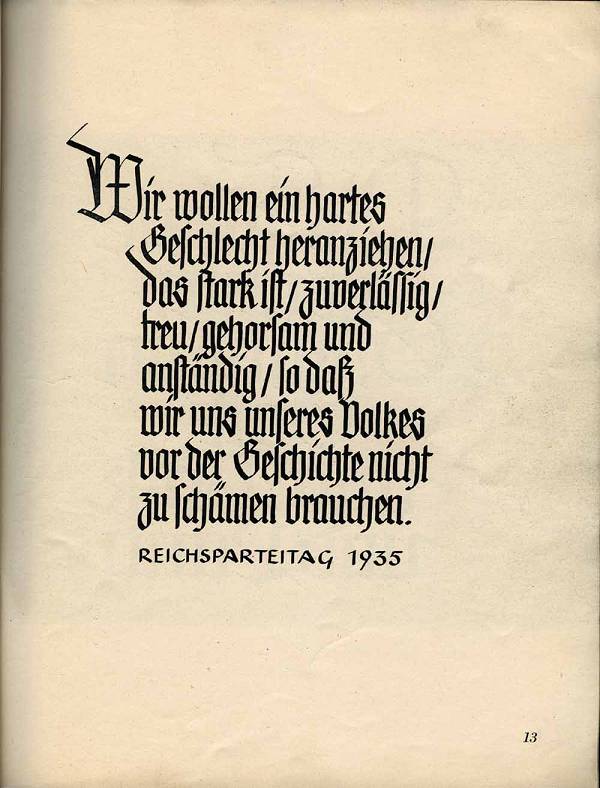 Wir wollen ein hartes
Geschlecht heranziehen/
das stark ist/zuverlässig/
treu/gehorsam und
anständig/so daß
wir uns unseres Volkes
vor der Geschichte nicht
zu schämen brauchen.
REICHSPARTEITAG 1935
13